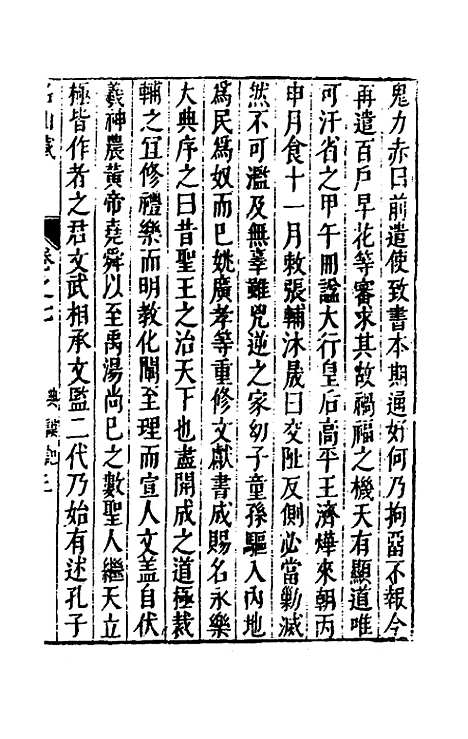 鬼力赤曰前遣使致書本期通好何乃拘留不報今
再遣百戶早花等審求其故禍福之機天有顯道唯
可汗省之甲午冊諡大行皇后高平王濟熚來朝丙
申月食十一月敕張輔沐晟曰交阯反側必當勦滅
然不可濫及無辜雖兇逆之家幼子童孫驅入內地
爲民爲奴而巳姚廣孝等重修文獻書成賜名永樂
大典序之曰昔聖王之治天下也盡開成之道極裁
輔之宜修禮樂而明教化闡至理而宣人文盖自伏
羲神農黃帝堯舜以至禹湯尚巳之數聖人繼天立
極皆作者之君文武相承文監二代乃始有述孔子
名山藏
卷之七
典謨記二